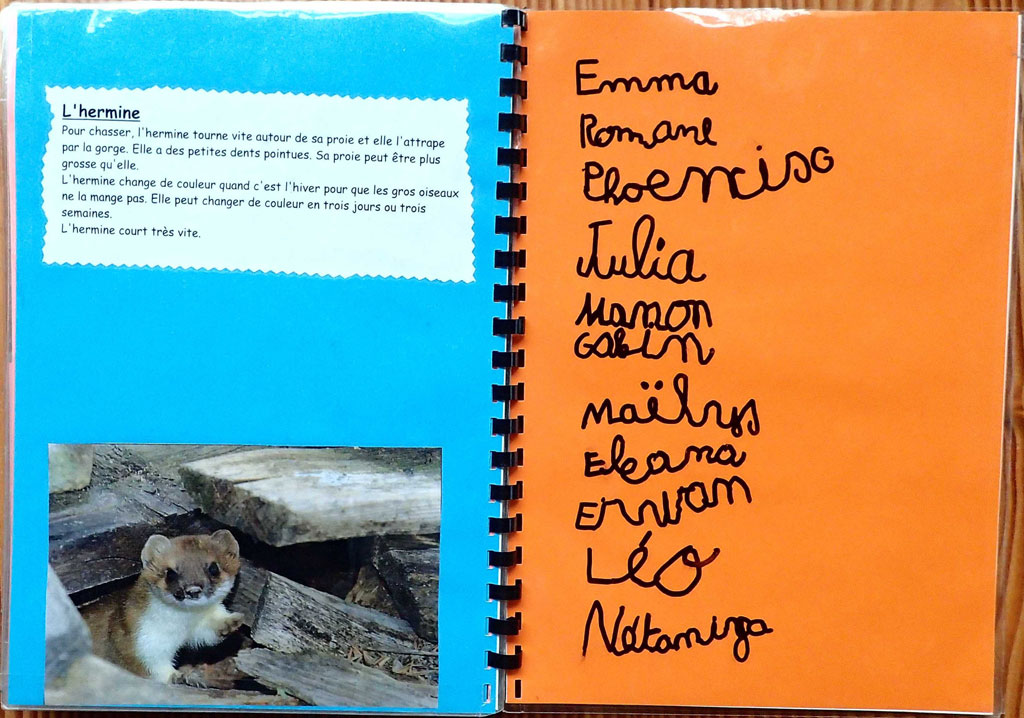 L'hermine
Pour chasser, l'hermine tourne vite autour de sa proie et elle l'attrape
par la gorge. Elle a des petites dents pointues. Sa proie peut être plus
grosse qu'elle.
L'hermine change de couleur quand c'est l'hiver pour que les gros oiseaux
ne la mange pas. Elle peut changer de couleur en trois jours ou trois
semaines.
L'hermine court très vite.
Emma
Romane
Julia
Manon
Gabin
Maëlys
Eleana
Erwan
Léo